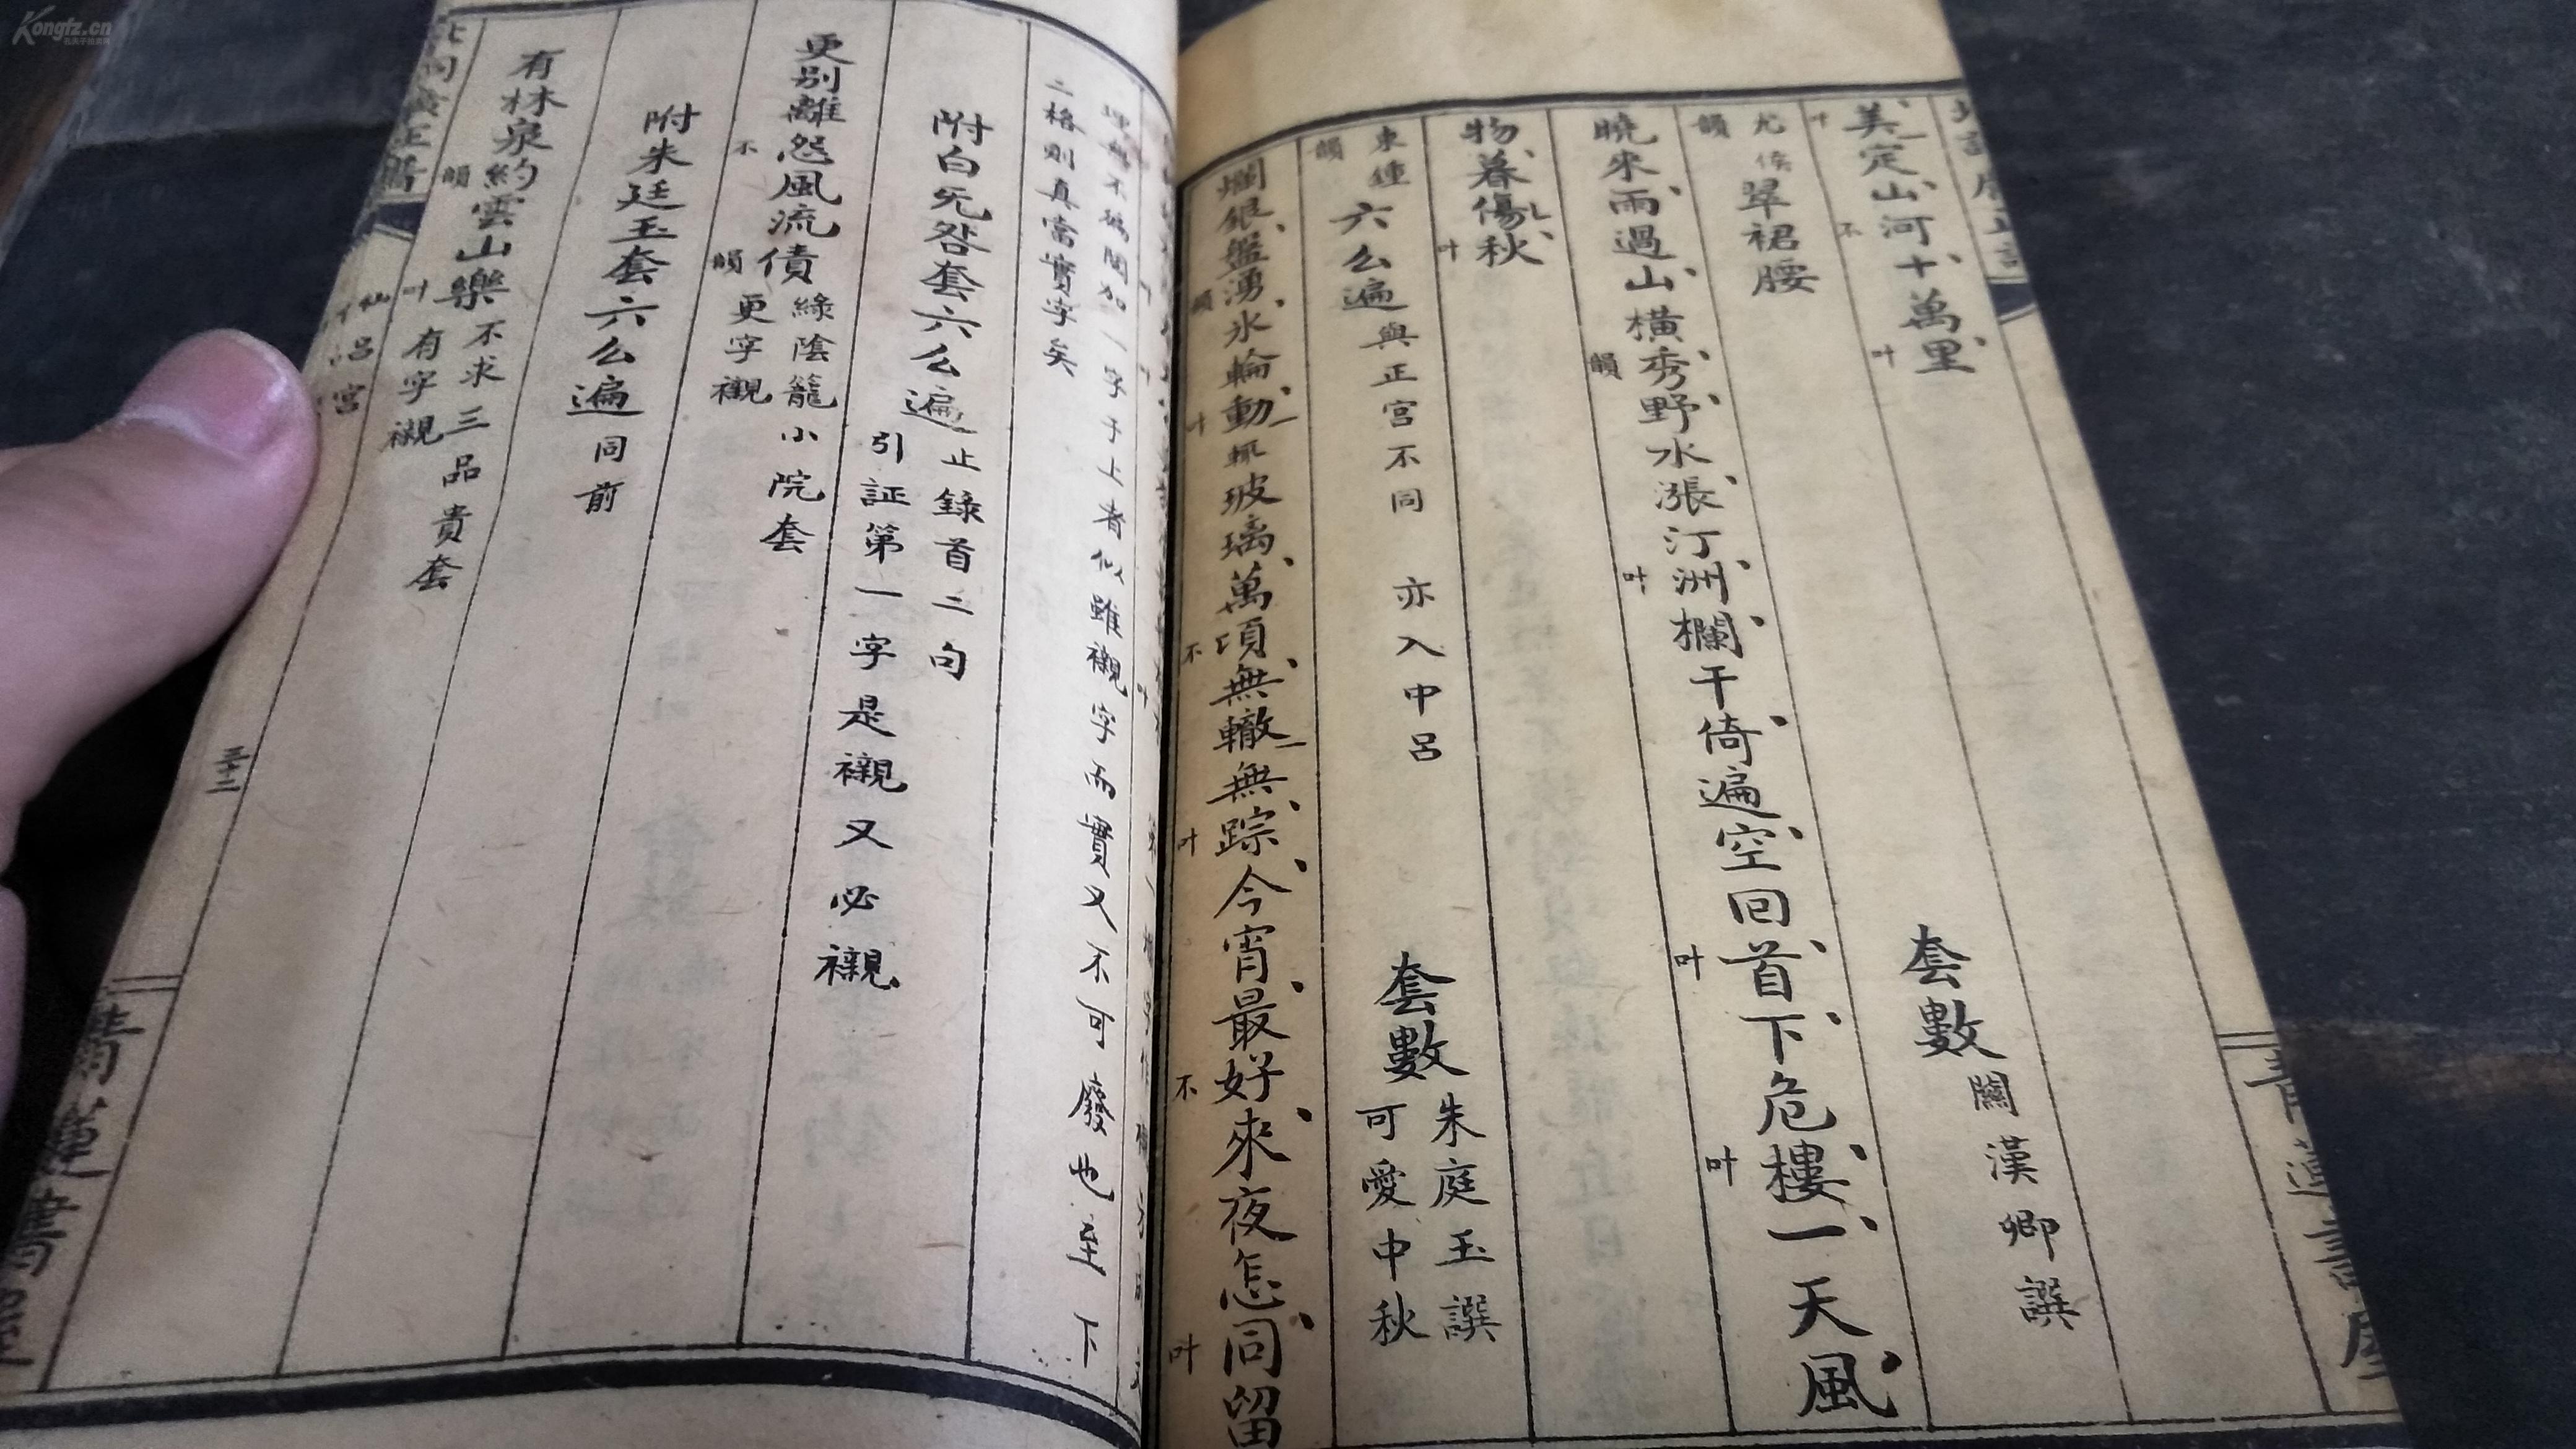 美定山河十萬里
叶 不 叶
尤侯
韻
翠裙腰
套數
關漢卿譔
曉來雨過山橫秀野水漲汀洲欄干倚遍空回首下危樓一天風
韻 叶 叶 叶
物暮傷秋
叶
東鍾
韻
六么遍
與正宮不同 亦入中呂
套數
朱庭玉譔
可愛中秋
爛銀盤湧氷輪動輾玻璃萬頃無轍無踪今宵最好來夜怎同留
韻 叶 不 叶 不 叶
加一字于上者似雖襯字而實又不可廢也至下
二格則真當實字矣
附白旡咎套六么遍
止錄首二句
引証第一字是襯又必襯
更別離怨風流債
不 韻
綠陰籠小院套
更字襯
附朱廷玉套六么遍
同前
有林泉約雲山樂
韻 叶
不求三品貴套
有字襯
呂宮
三十二
青蓮書屋
Kongfz.cn